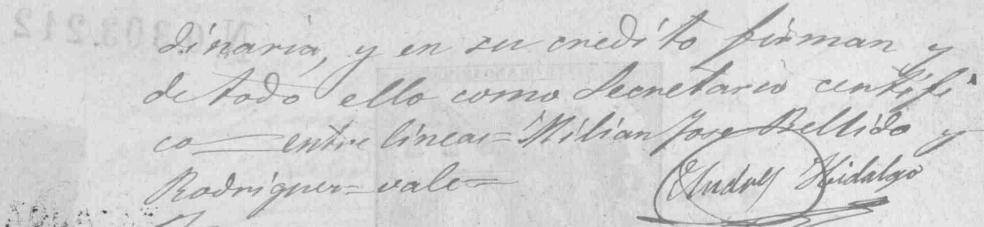 dinaria, y en su credito firman y
de todo ello como Secretario certifi
co — entre lineas = Milian Jose Bellido y
Rodriguez = vale =
Hidalgo